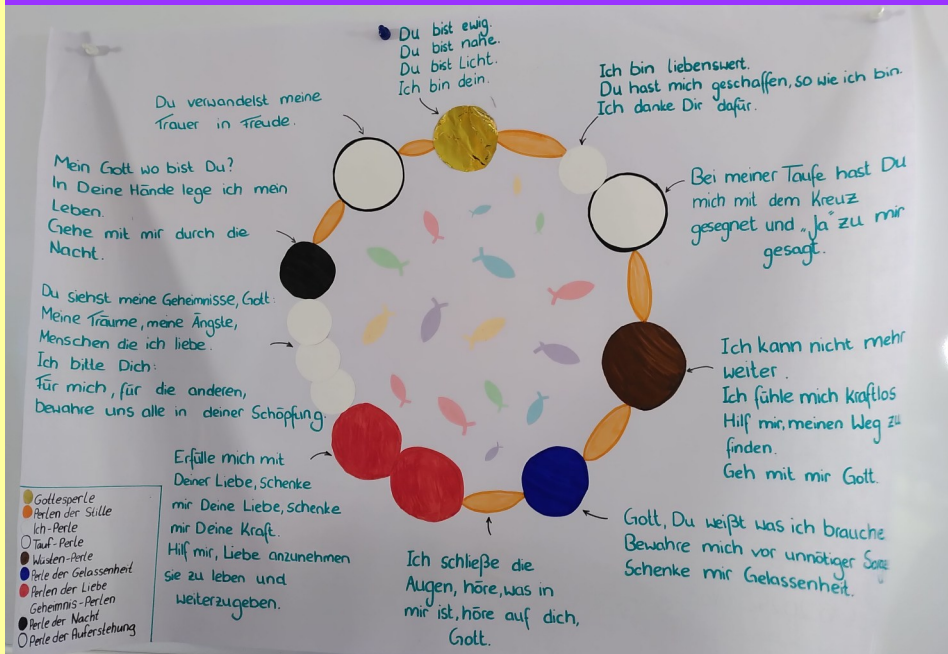 Du bist ewig.
Du bist nahe.
Du bist Licht.
Ich bin dein.
Ich bin liebenswert.
Du hast mich geschaffen, so wie ich bin.
Ich danke Dir dafür.
Bei meiner Taufe hast Du
mich mit dem Kreuz
gesegnet und „Ja" zu mir
gesagt.
Ich kann nicht mehr
weiter.
Ich fühle mich kraftlos
Hilf mir, meinen Weg zu
finden.
Geh mit mir Gott.
Gott, Du weißt was ich brauche
Bewahre mich vor unnötiger Sorge
Schenke mir Gelassenheit.
Ich schließe die
Augen, höre, was in
mir ist, höre auf dich,
Gott.
Erfülle mich mit
Deiner Liebe, Schenke
mir Deine Liebe, Schenke
mir Deine Kraft.
Hilf mir, Liebe anzunehmen
sie zu leben und
weiterzugeben.
Du siehst meine Geheimnisse, Gott:
Meine Träume, meine Ängste,
Menschen die ich liebe.
Ich bitte Dich:
Für mich, für die anderen,
bewahre uns alle in deiner Schöpfung.
Mein Gott wo bist Du?
In Deine Hände lege ich mein
Leben.
Gehe mit mir durch die
Nacht.
Du verwandelst meine
Trauer in Freude.
Gottesperle
Perlen der Stille
Ich-Perle
Tauf-Perle
Wüsten-Perle
Perle der Gelassenheit
Perlen der Liebe
Geheimnis-Perlen
Perle der Nacht
Perle der Auferstehung